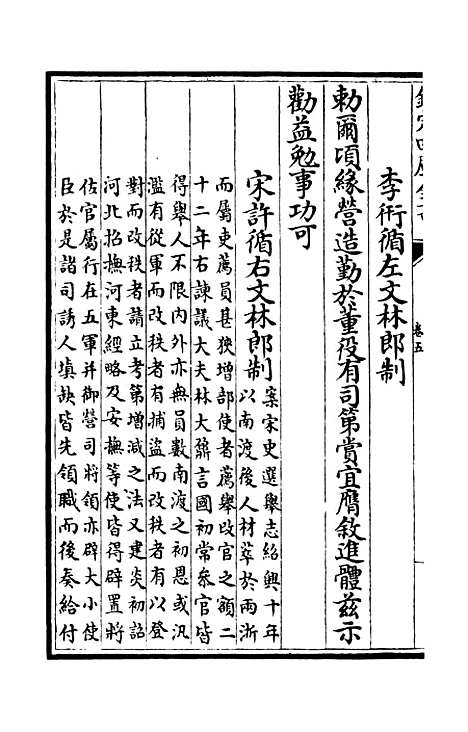 卷五
李術循左文林郎制
勅爾頃緣營造勤於董役有司第賞宜膺敘進體茲示
勸益勉事功可
宋許循右文林郎制
案宋史選舉志紹興十年
以南渡後人材萃於兩浙
而屬吏薦員甚狹增部使者薦舉改官之額二
十二年右諫議大夫林大鼐言國初常參官皆
得舉人不限内外亦無員數南渡之初恩或汎
濫有從軍而改秩者有捕盜而改秩者有以登
對而改秩者請立考第增減之法又建炎初詔
河北招撫河東經略及安撫等使皆得辟置將
佐官屬行在五軍并御營司將領亦辟大小使
臣於是諸司誘人填缺皆先領職而後奏給付